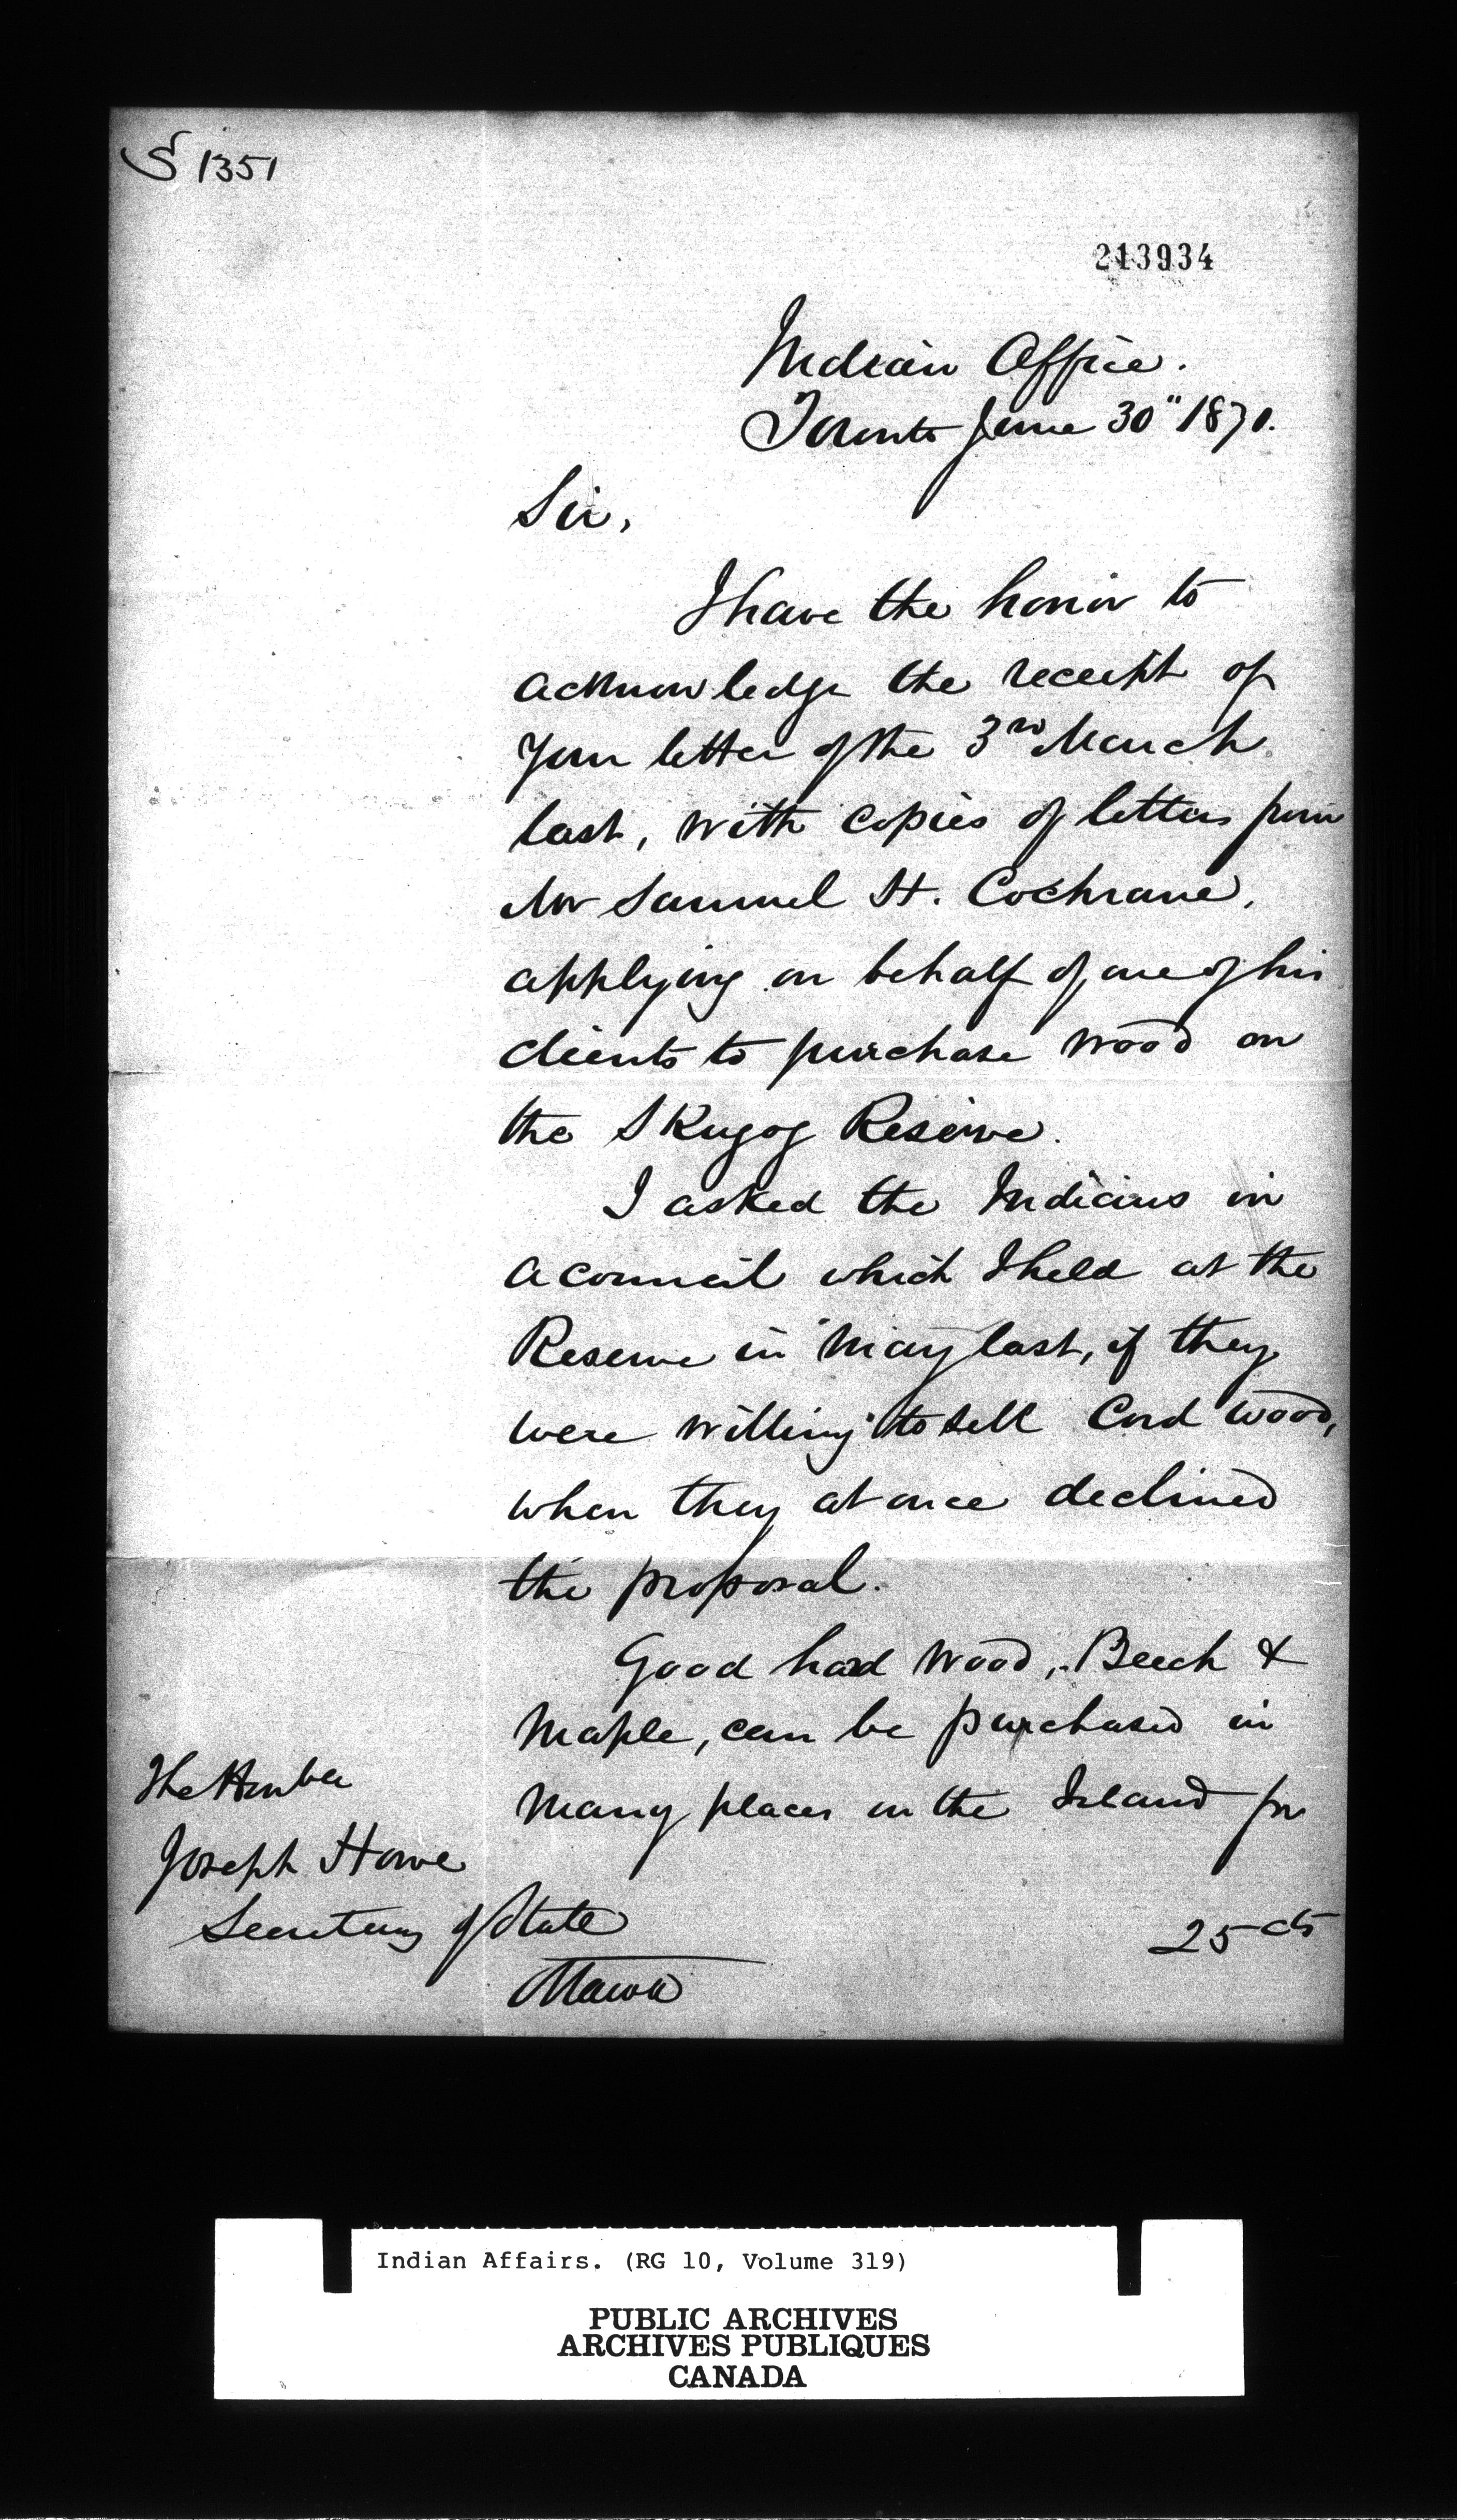 S 1351
213934
Indian Office.
Toronto June 30" 1870.
Sir,
I have the honor to
acknowledge the receipt of
your letter of the 3rd March
last, with copies of letters from
Mr Samuel H. Cochrane,
applying on behalf of one of his
clients to purchase wood on
the Skugog Reserve.
I asked the Indians in
a council which I held at the
Reserve in May last, if they
were willing to sell Cord wood,
when they at once declined
the proposal.
Good hard wood, Beech &
Maple, can be purchased in
many places in the Island for
25 cts
The Honble
Joseph Howe
Secretary of State
Ottawa
Indian Affairs. (RG 10, Volume 319)
PUBLIC ARCHIVES
ARCHIVES PUBLIQUES
CANADA